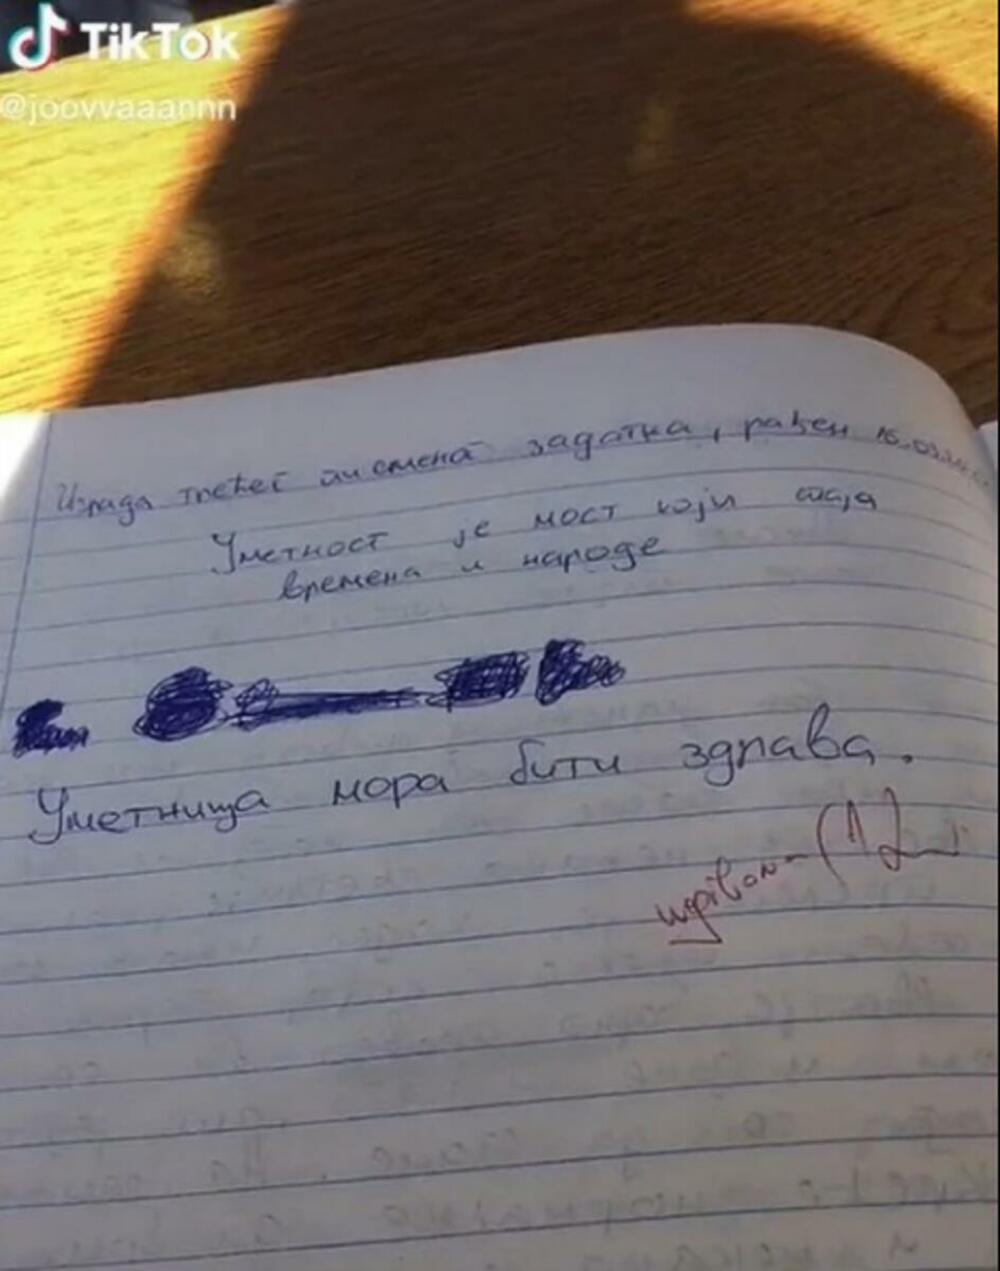 TikTok
@joovvaaannn
Израда трећег писменог задатка, рађен 16.03.
Уметност је мост који спаја
времена и народе
Уметница мора бити здрава.
(1)